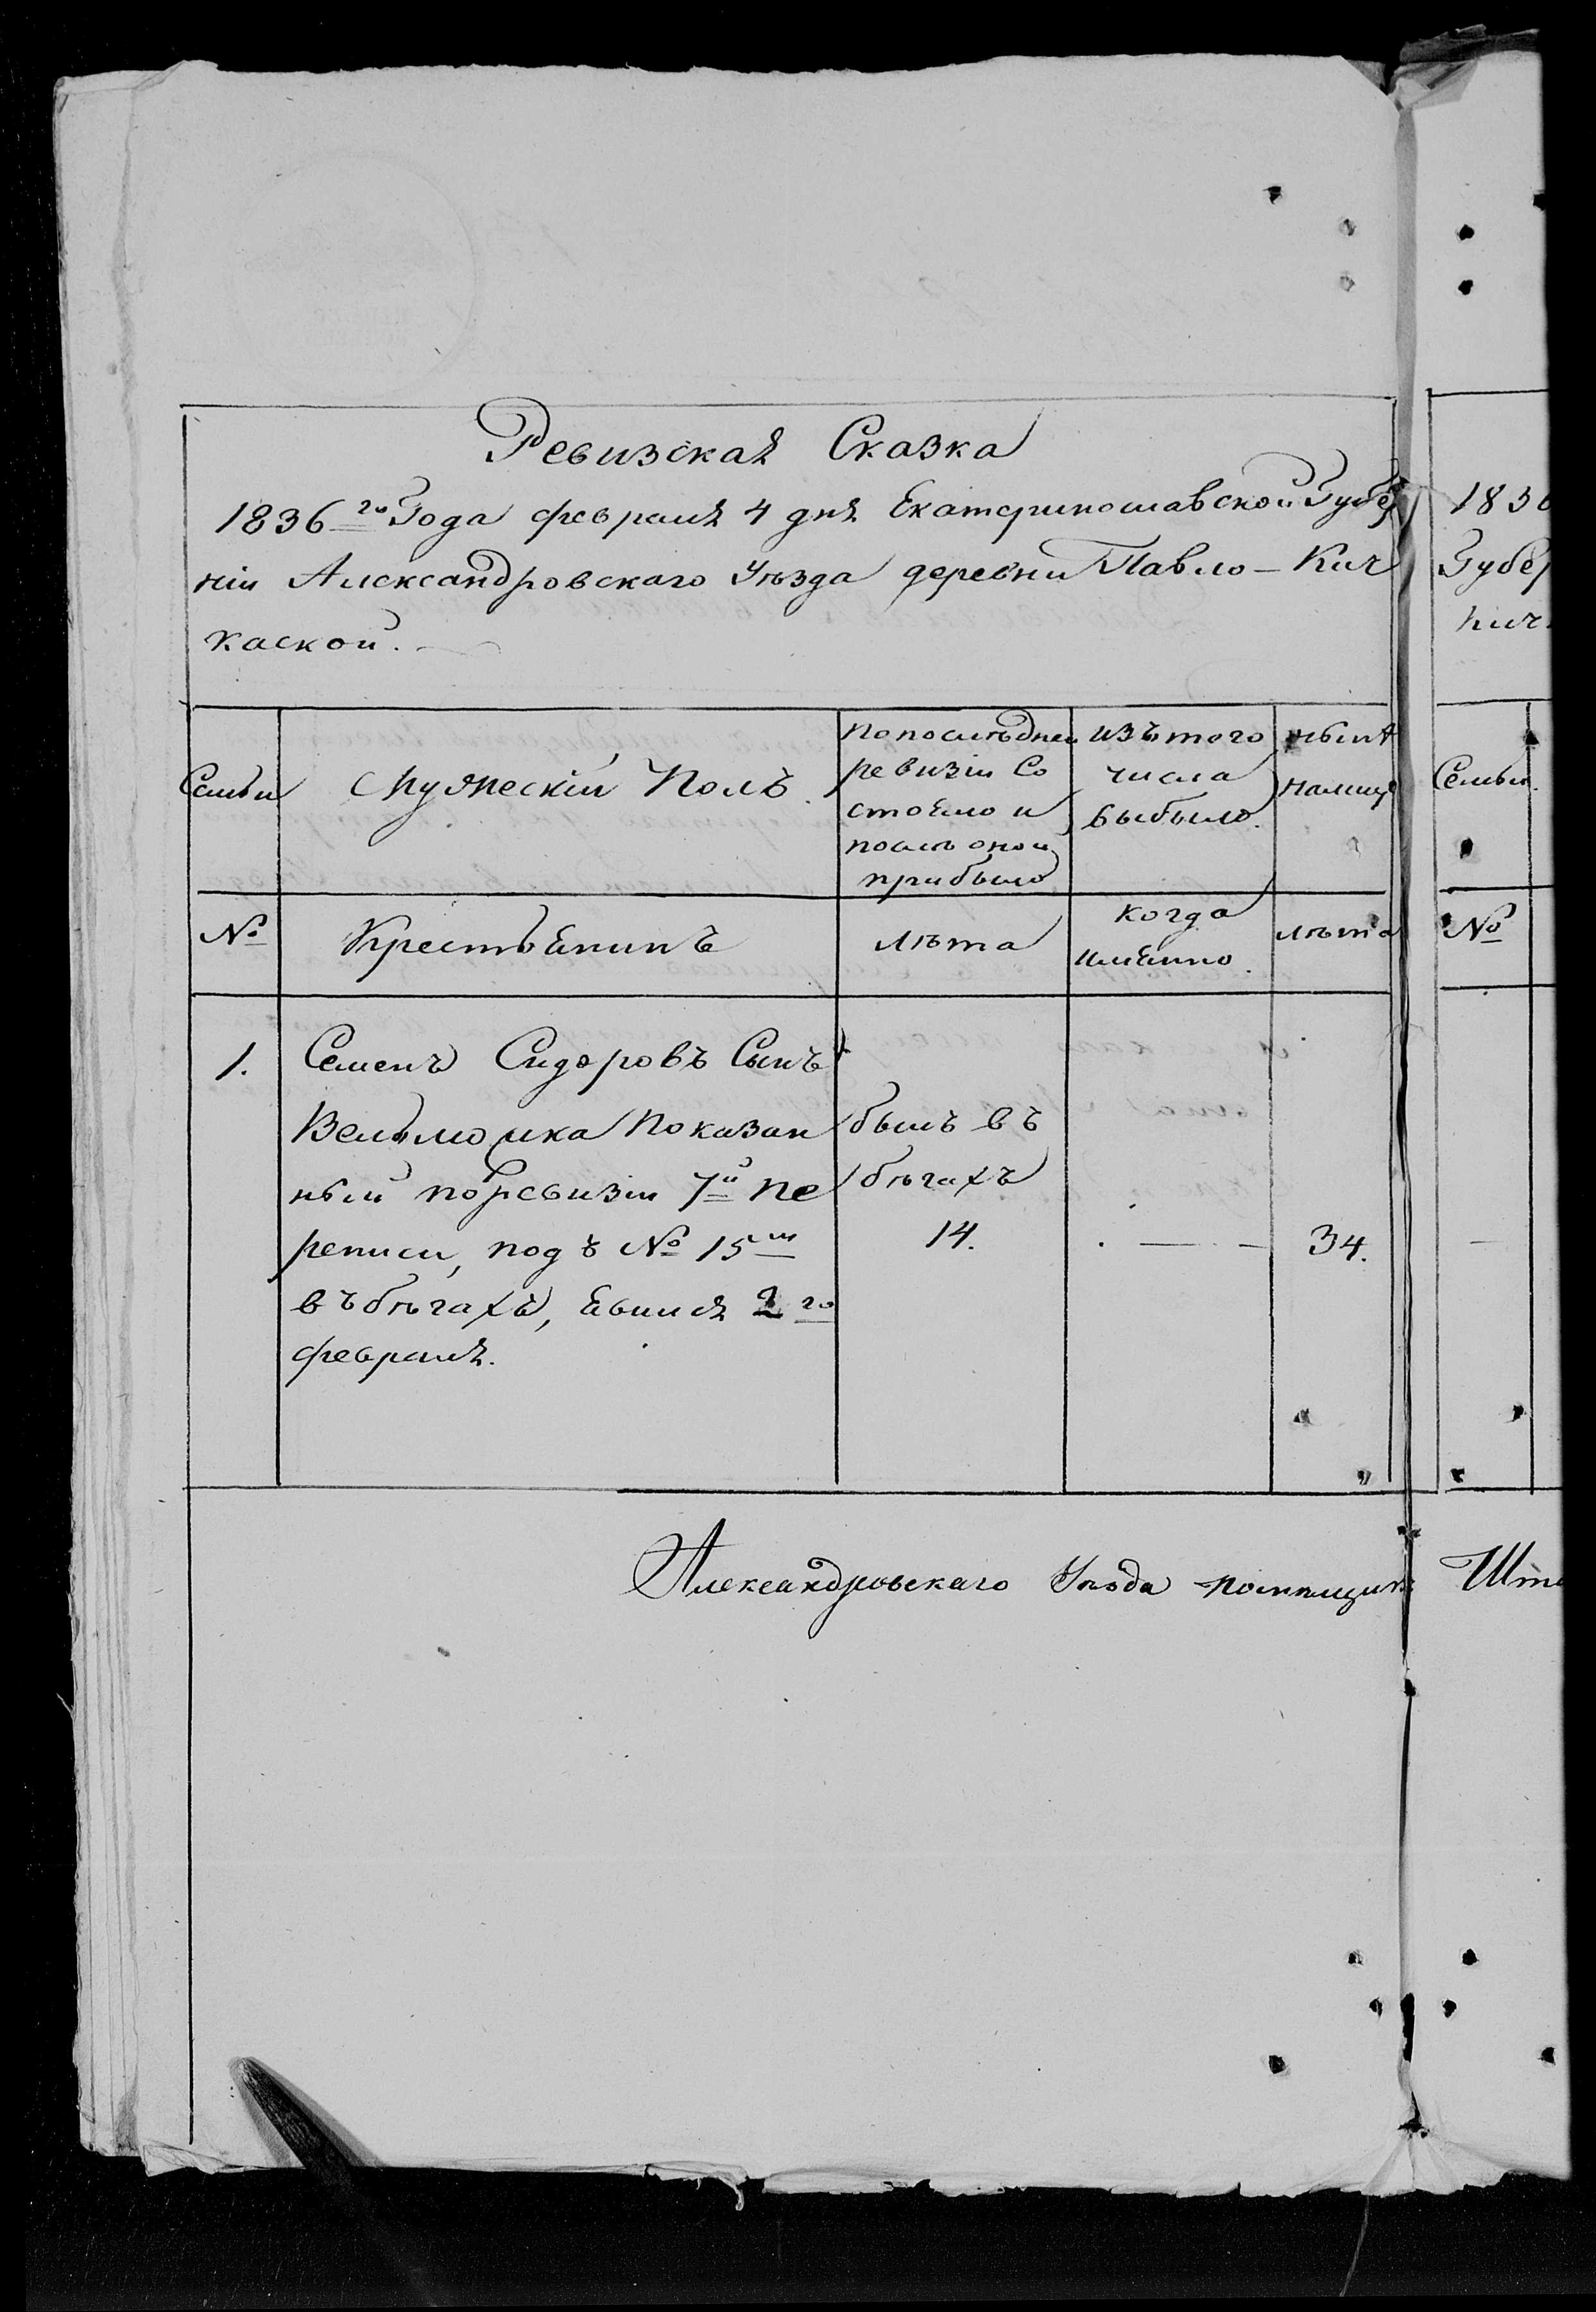 Ревизская Сказка
1836го Года февраля 4 дня Екатеринославской Губер
ніи Александровскаго Уѣзда деревни Павло-Кич
каской.
Семьи
Мужескій Полъ.
По послѣдней
ревизіи Со
стоело и
послѣ оной
прибыло
изъ того
числа
выбыло.
нынѣ
налице
№
Крестьенинъ
лѣта
когда
именно.
лѣта
1.
Семенъ Сидоровъ Сынъ
Показан
былъ въ
ный по ревизіи 7й пе
бѣгахъ
реписи, подъ № 15м
14.
34.
въ бѣгахъ, евился 2го
февраля.
Александровскаго Уезда помещик
1836
Губер
кич
Семьи.
№
Шта